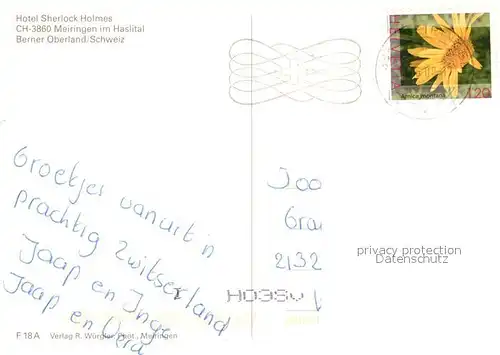 Hotel Sherlock Holmes
CH-3860 Meiringen im Haslital
Berner Oberland/Schweiz
HELVETIA
Arnica montana
120
Groetjes vanuit in
prachtig Zwitserland
Jaap en Inge
Jaap en Vera
Joo
Gra
2132
privacy protection
Datenschutz
F 18 A Verlag R. Würgler, Phot., Meiringen